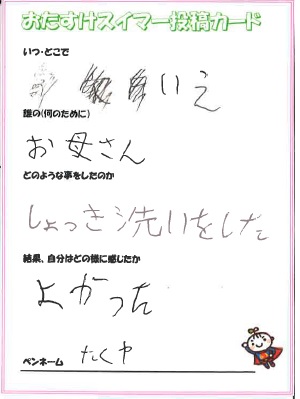 おたすけスイマー投稿カード
いつ・どこで
いえ
誰の(何のために)
お母さん
どのような事をしたのか
しょっき洗いをした
結果、自分はどの様に感じたか
よかった
ペンネーム たくや